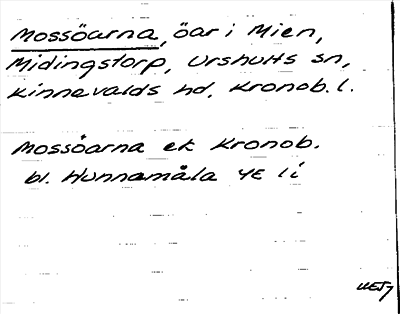 Mossöarna, öar i Mien,
Midingstorp, Urshults sn,
Kinnevalds hd, Kronob. l.
Mossöarna ek Kronob.
bl. Hunnamåla 4E 1i